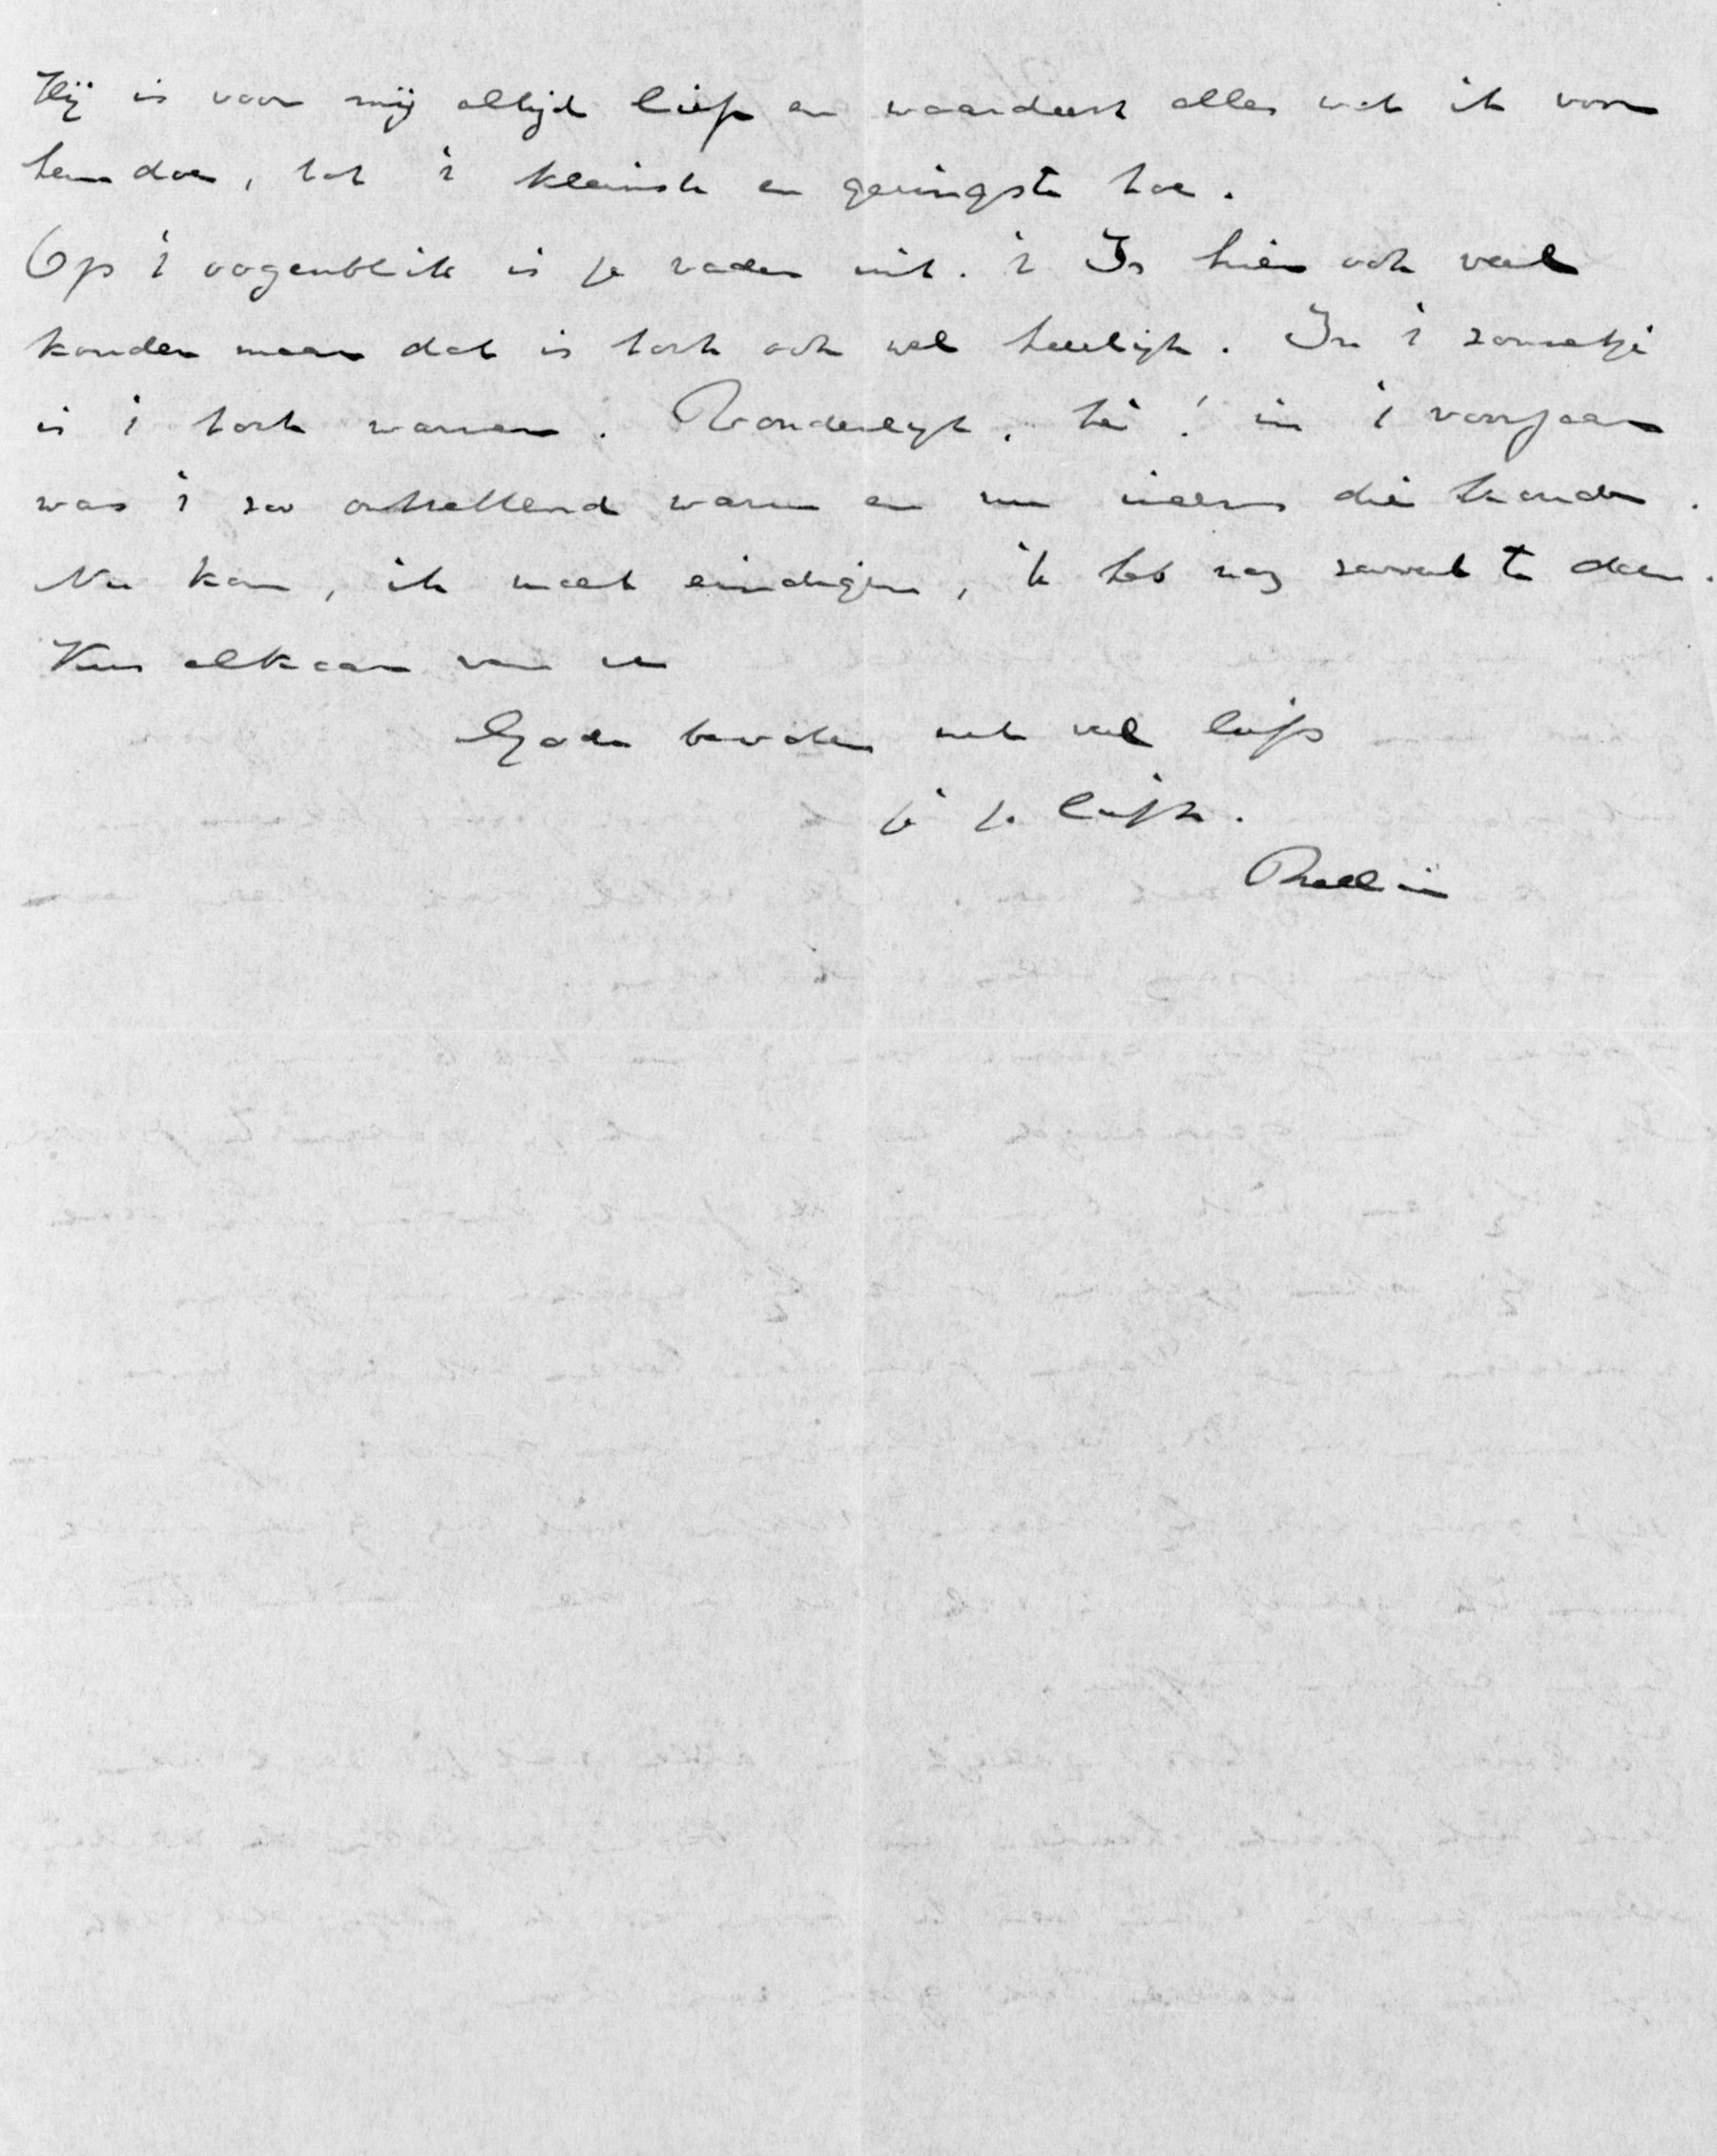 Hij is voor mij altijd lief en waardeert alles wat ik voor
hem doe, tot 't kleinste en geringste toe.
Op 't oogenblik is je vader uit. 't Is hier ook veel
kouder maar dat is toch ook wel heerlijk. In 't zonnetje
is 't toch warm. Wonderlijk, hè! in 't voorjaar
was 't zoo ontzettend warm en nu ineens die koude.
Nu kom, ik moet eindigen, ik heb nog zooveel te doen.
Kus elkaar van me
Gode bevolen met veel liefs
je je liefh.